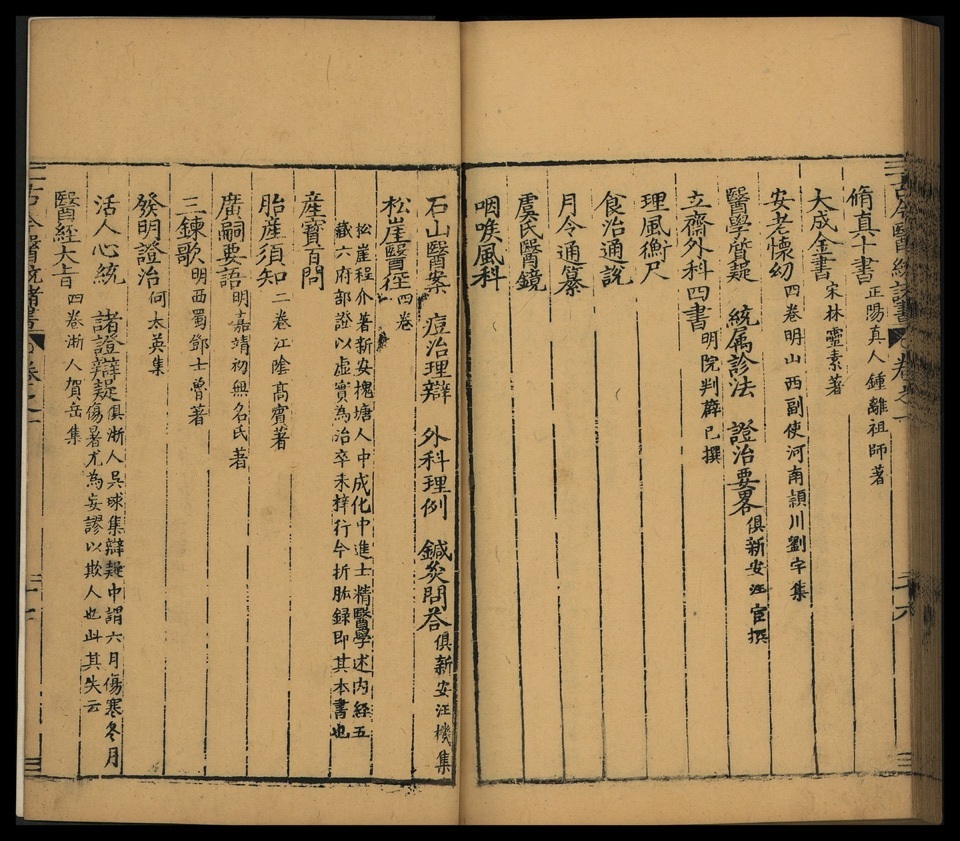 脩真十書正陽真人鍾離祖師著
大成金書宋林靈素著
安老懷幼四卷明山西副使河南頴川劉宇集
醫學質疑　統属診法　證治要畧俱新安汪宦撰
立齋外科四書明院判薜已撰
理風衡尺
食治通說
月令通纂
虞氏醫鏡
咽喉風科
石山醫案　痘治理辯　外科理例　鍼灸問答俱新安汪機集
松崖醫徑四卷
松崖程介著新安槐塘人中成化中進士精醫學述内経五
藏六府部證以虚實為治卒未梓行今折肱録即其本書也
產寶百問
胎產須知二卷江隂髙賔著
廣嗣要語明嘉靖初無名氏著
三錬歌明西蜀鄧士魯著
發明證治何太英集
活人心統　諸證辯疑俱浙人吴球集辯疑中謂六月傷寒冬月
傷暑尤為妄謬以欺人也此其失云
醫經大旨四卷浙人賀岳集